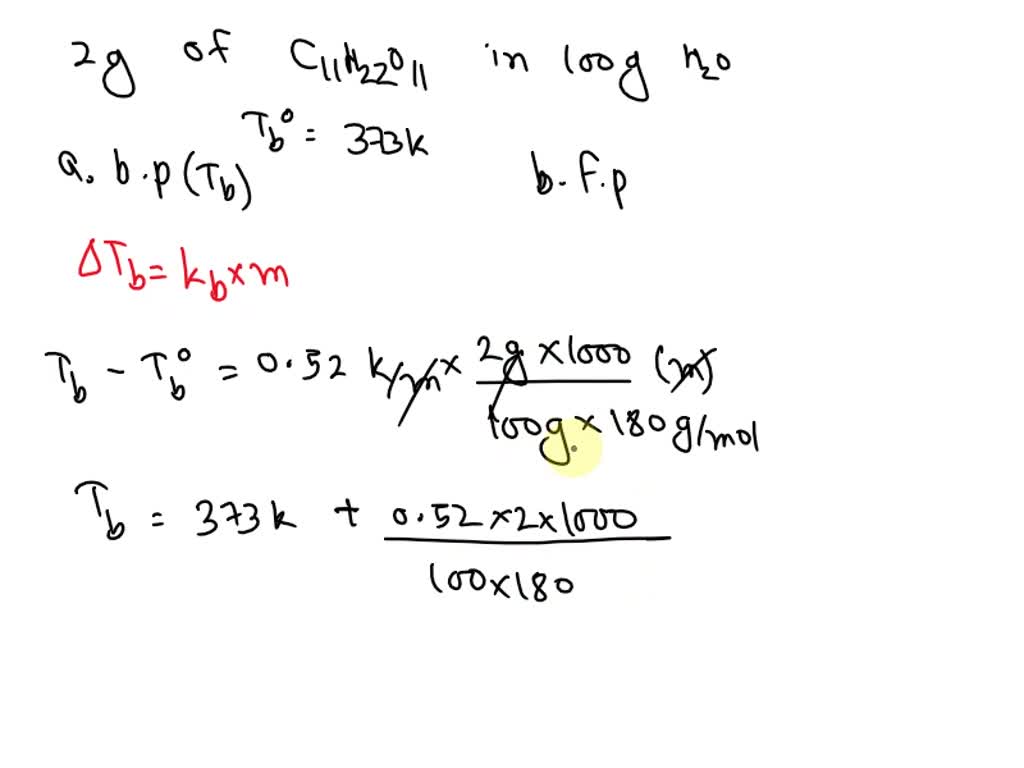 2g of C₁₁H₂₂O₁₁ in 100g H₂O
T_b° = 373k
a. b.p (T_b) b. f.p
ΔT_b = k_b × m
T_b - T_b° = 0.52 k/m × 2g × 1000 / 100g × 180 g/mol (m)
T_b = 373k + 0.52 × 2 × 1000 / 100 × 180